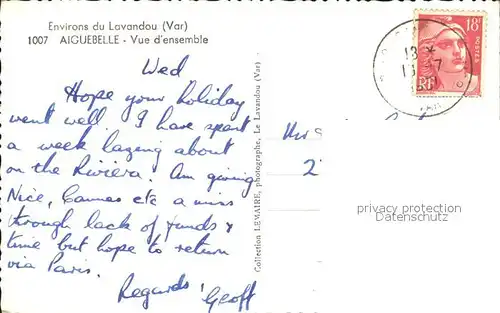 Environs du Lavandou (Var)
1007 AIGUEBELLE - Vue d'ensemble
Wed
Hope your holiday
went well. I have spent
a week lazing about
on the Riviera. Am giving
Nice, Cannes etc a miss
through lack of funds &
time but hope to return
via Paris.
Regards Geoff
Collection LEMAIRE, photographe, Le Lavandou (Var)
18F
POSTES
RF
13
2
privacy protection
Datenschutz